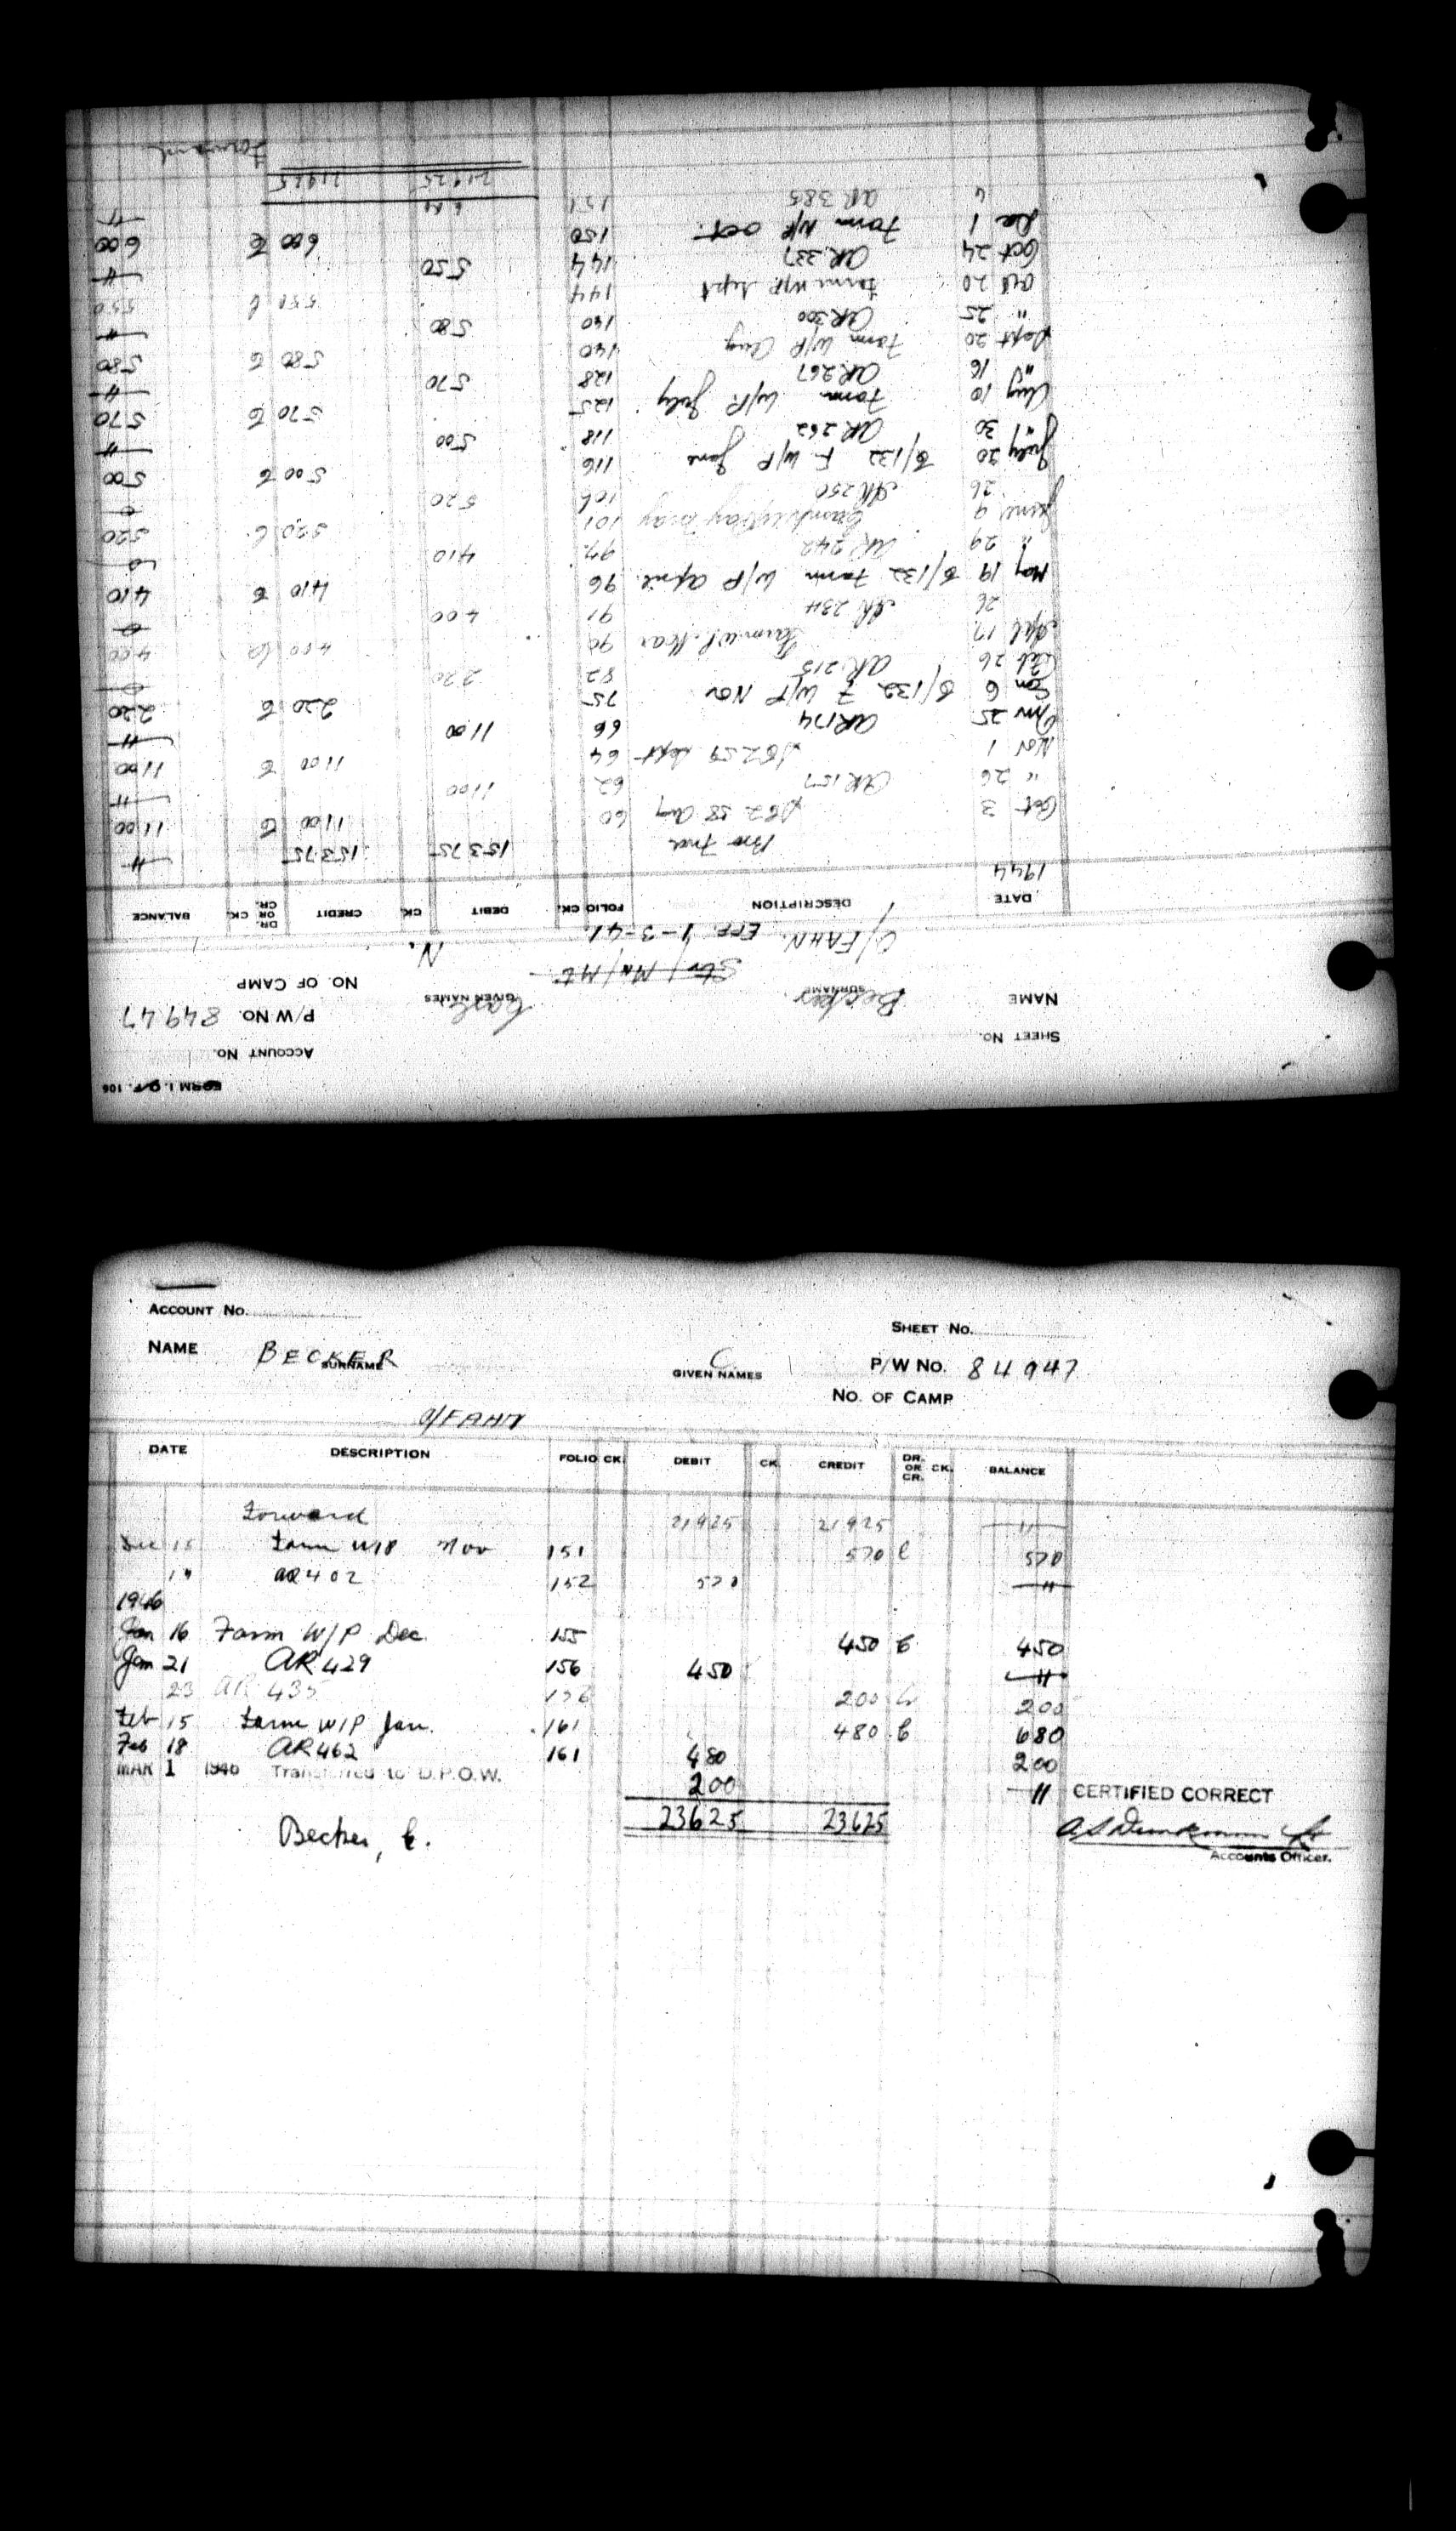 FORM I.O.F. 106
ACCOUNT NO.
SHEET NO.
P/W NO. 84947
NAME Becker Carl
SURNAME GIVEN NAMES
NO. OF CAMP
Str/Mn/Mt N.
O/FAHN. EFF. 1-3-41.
DATE DESCRIPTION FOLIO CK. DEBIT CK. CREDIT DR. OR CR. CK. BALANCE
1944
Bro Fwd 153.75 153.75 —"—
Oct 3 S82 58 Aug 60 11 00 C 11 00
" 26 AR 157 62 11 00 —"—
Nov 1 S82 59 Sept 64 11 00 C 11 00
Nov 25 AR174 66 11.00 —"—
Jan 6 8/132 F W/P Nov 75 2 20 C 2 20
Feb 26 AR 215 82 2 20 0
Apl 17 Farm W.P. Mar 90 4 00 Cr 4 00
26 AR 234 91 4 00 0
May 19 8/132 Farm W/P April 96 4 10 C 4 10
" 29 AR 242 97 4 10 0
June 9 Pay May 101 5 20 C 5 20
26 AR 250 106 5 20 0
July 20 8/132 F W/P June 116 5 00 C 5 00
" 30 AR 262 118 5 00 —"—
Aug 10 Farm W/P July 125 5 70 C 5 70
" 16 AR 267 128 5 70 —"—
Sept 20 Farm W/P Aug 140 5 80 C 5 80
" 25 AR 300 140 5 80 —"—
Oct 20 Farm W/P Sept 144 5 50 C 5 50
Oct 24 AR 337 144 5 50 —"—
Dec 1 Farm W/P Oct. 150 6 00 C 6 00
6 AR 385 151 6 00 —"—
219 25 219 25 Forward
ACCOUNT NO.
SHEET NO.
NAME BECKER C.
SURNAME GIVEN NAMES
P/W NO. 84947
NO. OF CAMP
O/FAHN
DATE DESCRIPTION FOLIO CK. DEBIT CK. CREDIT DR. OR CR. CK. BALANCE
Forward 219 25 219 25 —"—
Dec 15 Farm W/P Nov 151 5 70 C 5 70
" AR 402 152 5 70 —"—
1946
Jan 16 Farm W/P Dec. 155 4 50 C 4 50
Jan 21 AR 429 156 4 50 —"—
23 AR 435 156 2 00 Cr 2 00
Feb 15 Farm W/P Jan. 161 4 80 C 6 80
Feb 18 AR 462 161 4 80 2 00
MAR 1 1946 Transferred to D.P.O.W. 2 00 —"—
CERTIFIED CORRECT
236 25 236 25
Becker, C.
Accounts Officer.